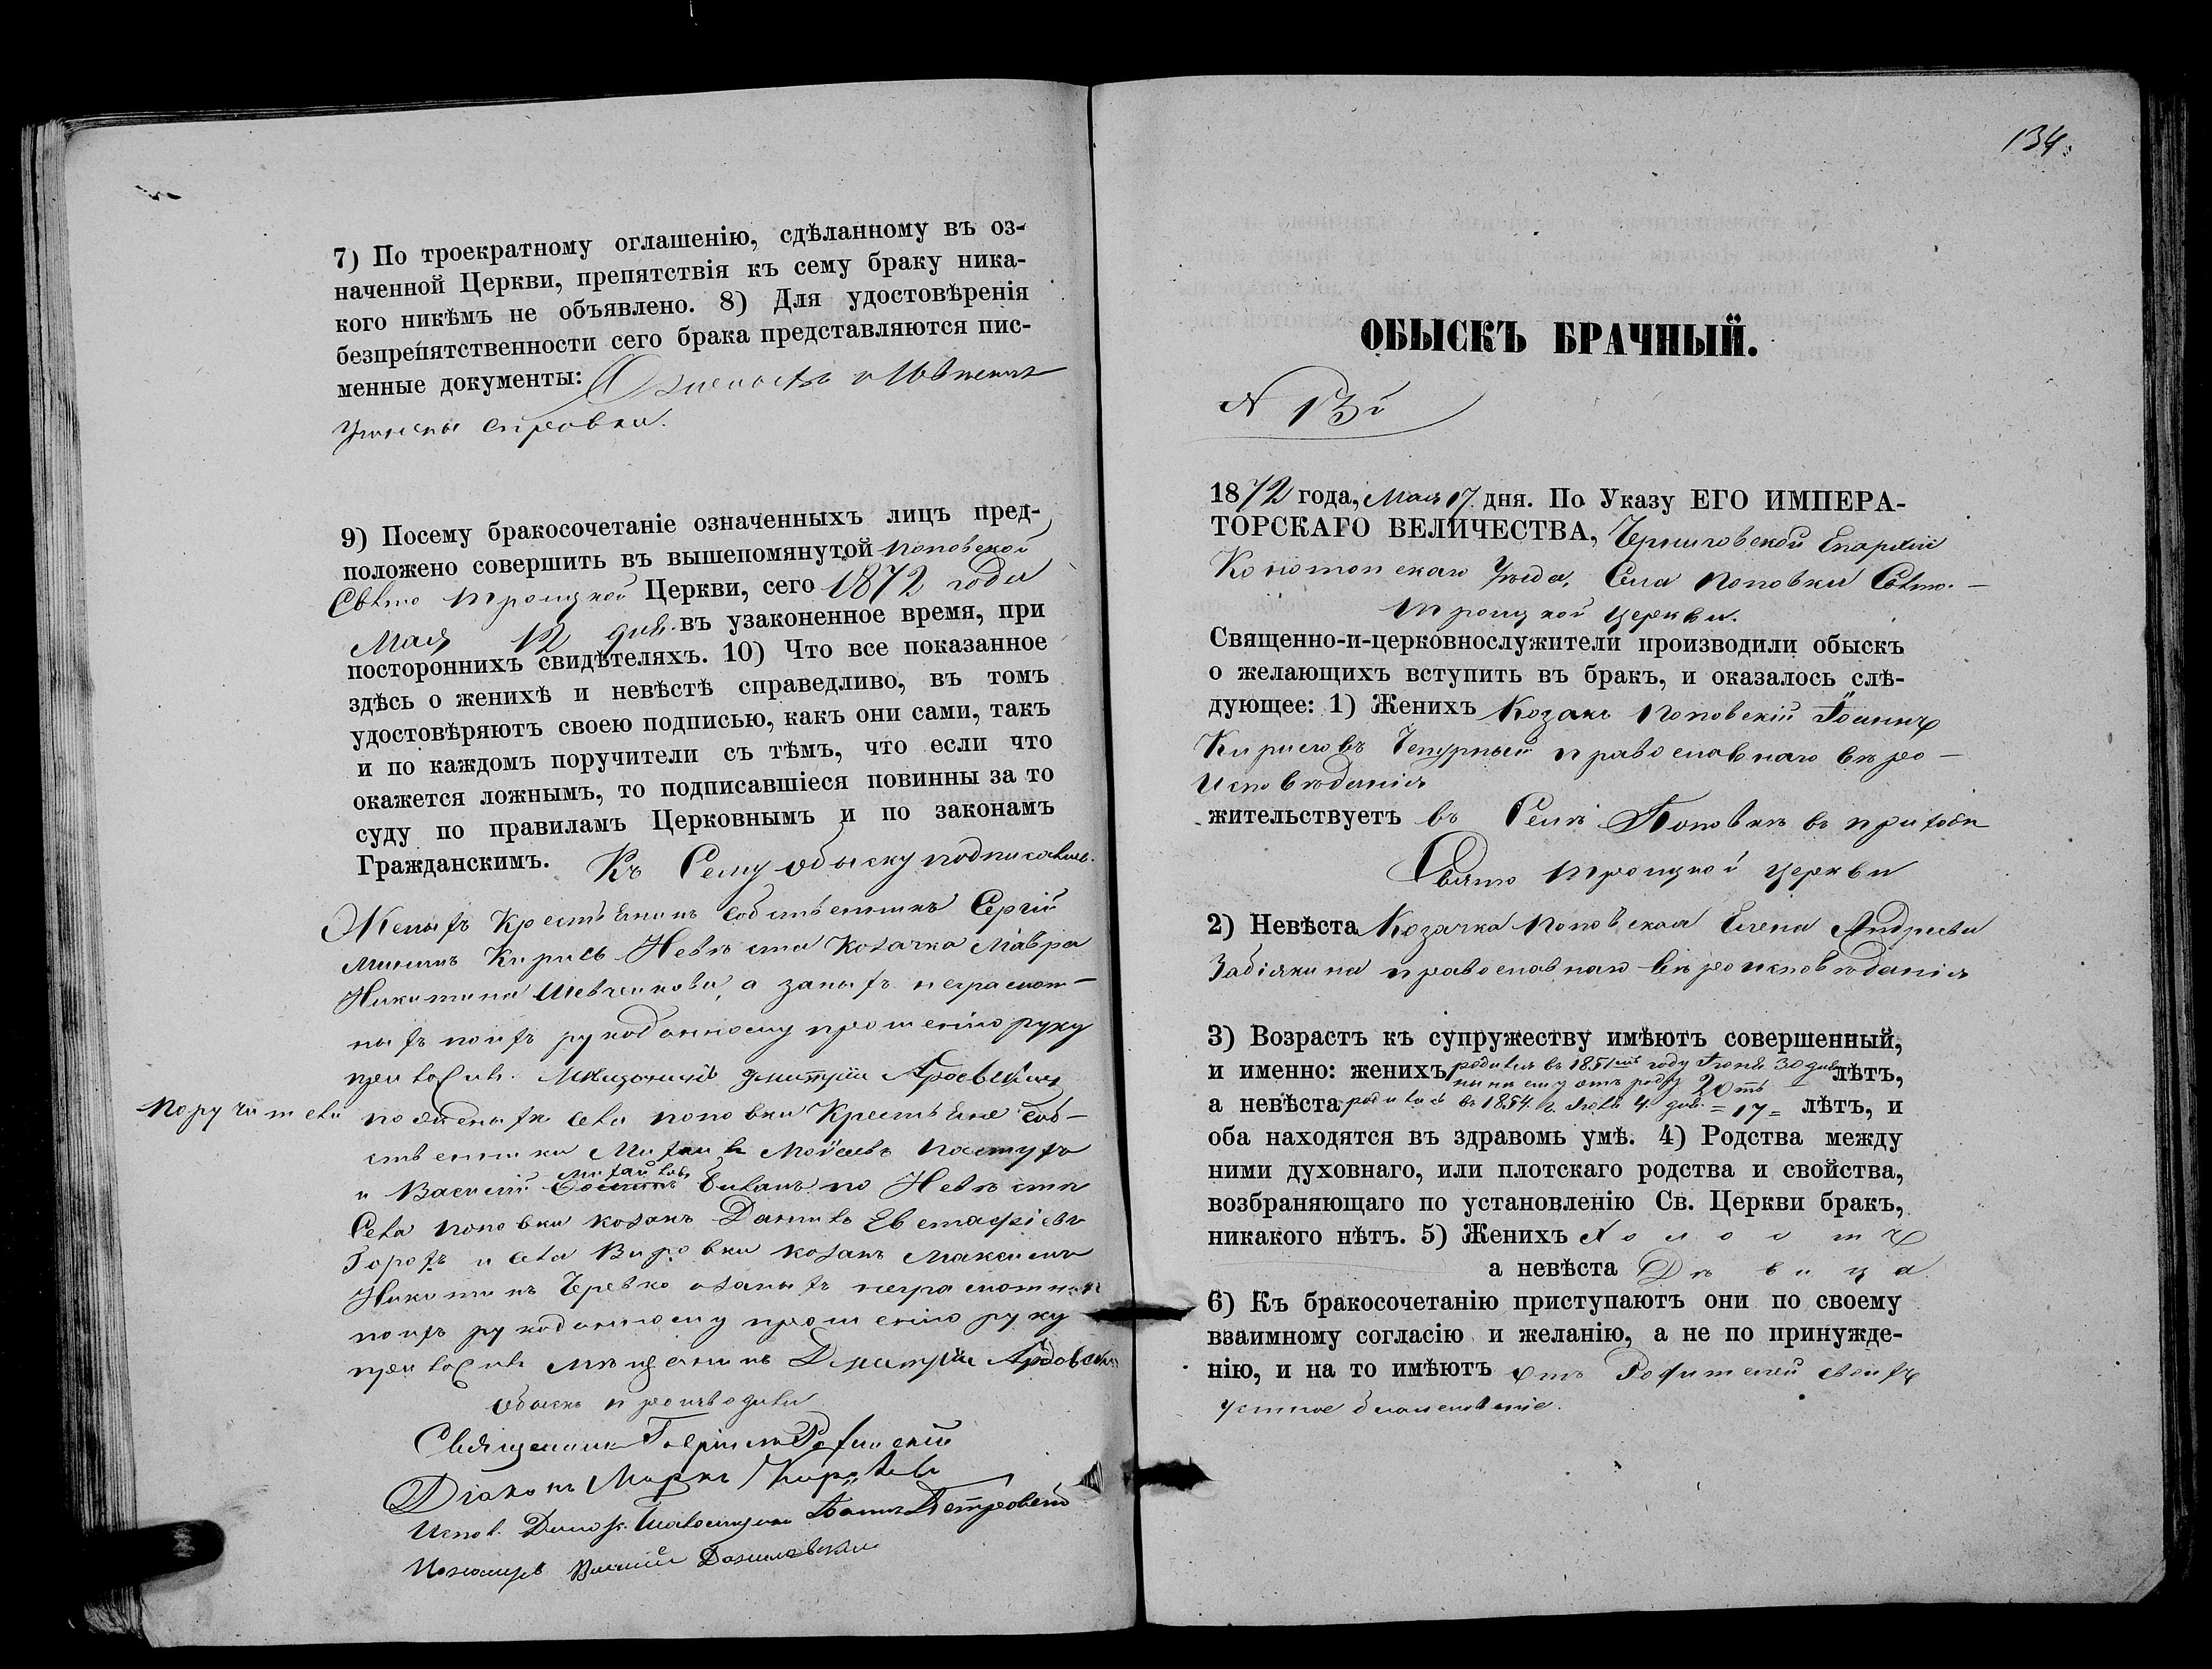 7) По троекратному оглашенію, сдѣланному въ оз-
наченной Церкви, препятствія къ сему браку ника-
кого никѣмъ не объявлено. 8) Для удостовѣренія
безпрепятственности сего брака представляются пис-
менные документы:
справки.
9) Посему бракосочетаніе означенныхъ лицъ пред-
положено совершить въ вышепомянутой Поповской
Свято Троицкой Церкви, сего 1872 года
Мая 12 дня въ узаконенное время, при
постороннихъ свидѣтеляхъ. 10) Что все показанное
здѣсь о женихѣ и невѣстѣ справедливо, въ томъ
удостовѣряютъ своею подписью, какъ они сами, такъ
и по каждомъ поручители съ тѣмъ, что если что
окажется ложнымъ, то подписавшіеся повинны за то
суду по правиламъ Церковнымъ и по законамъ
Гражданскимъ. Къ Сему обыску подписались
Женихъ Крестьянинъ собственникъ Сергій
Мининъ Кирись Невѣста Козачка Мавра
Никитина Шевченкова, а за нихъ неграмот-
ныхъ по ихъ рукоданному прошенію руку
приложилъ Мѣщанинъ Дмитрій
Поручители по женихѣ села Поповки Крестьяне соб-
ственники Моисеевъ Пастухъ
и Василій по Невѣстѣ
Села Поповки козакъ Данило Евстафіевъ
Горохъ и села Вировки козакъ Максимъ
Никитинъ Черевко а за нихъ неграмотныхъ
по ихъ рукоданному прошенію руку
приложилъ мѣщанинъ Дмитрій
Обыскъ производили
Священникъ Гавріилъ
Діаконъ Маркъ
Іоаннъ Петровскій
134.
ОБЫСКЪ БРАЧНЫЙ.
N 13й
1872 года, Мая 17 дня. По Указу ЕГО ИМПЕРА-
ТОРСКАГО ВЕЛИЧЕСТВА, Черниговской Епархіи
Конотопскаго уѣзда, Села Поповки Свято-
Троицкой церкви.
Священно-и-церковнослужители производили обыскъ
о желающихъ вступить въ бракъ, и оказалось слѣ-
дующее: 1) Женихъ Козакъ Поповскій Іоаннъ
Кириловъ Чепурный православнаго вѣро-
исповѣданія
жительствуетъ въ Селѣ Поповкѣ въ приходѣ
Свято Троицкой церкви
2) Невѣста Козачка Поповская Елена Андреева
Забіякина православнаго вѣроисповѣданія
3) Возрастъ къ супружеству имѣютъ совершенный,
и именно: женихъ родился въ 1851мъ году Іюня 30 дня лѣтъ,
нынѣ ему отъ роду 20ть
а невѣста родилась въ 1854. г. 4. дня = 17 = лѣтъ, и
оба находятся въ здравомъ умѣ. 4) Родства между
ними духовнаго, или плотскаго родства и свойства,
возбраняющаго по установленію Св. Церкви бракъ,
никакого нѣтъ. 5) Женихъ Холостъ
а невѣста Дѣвица
6) Къ бракосочетанію приступаютъ они по своему
взаимному согласію и желанію, а не по принужде-
нію, и на то имѣютъ отъ Родителей своихъ
устное благословеніе.